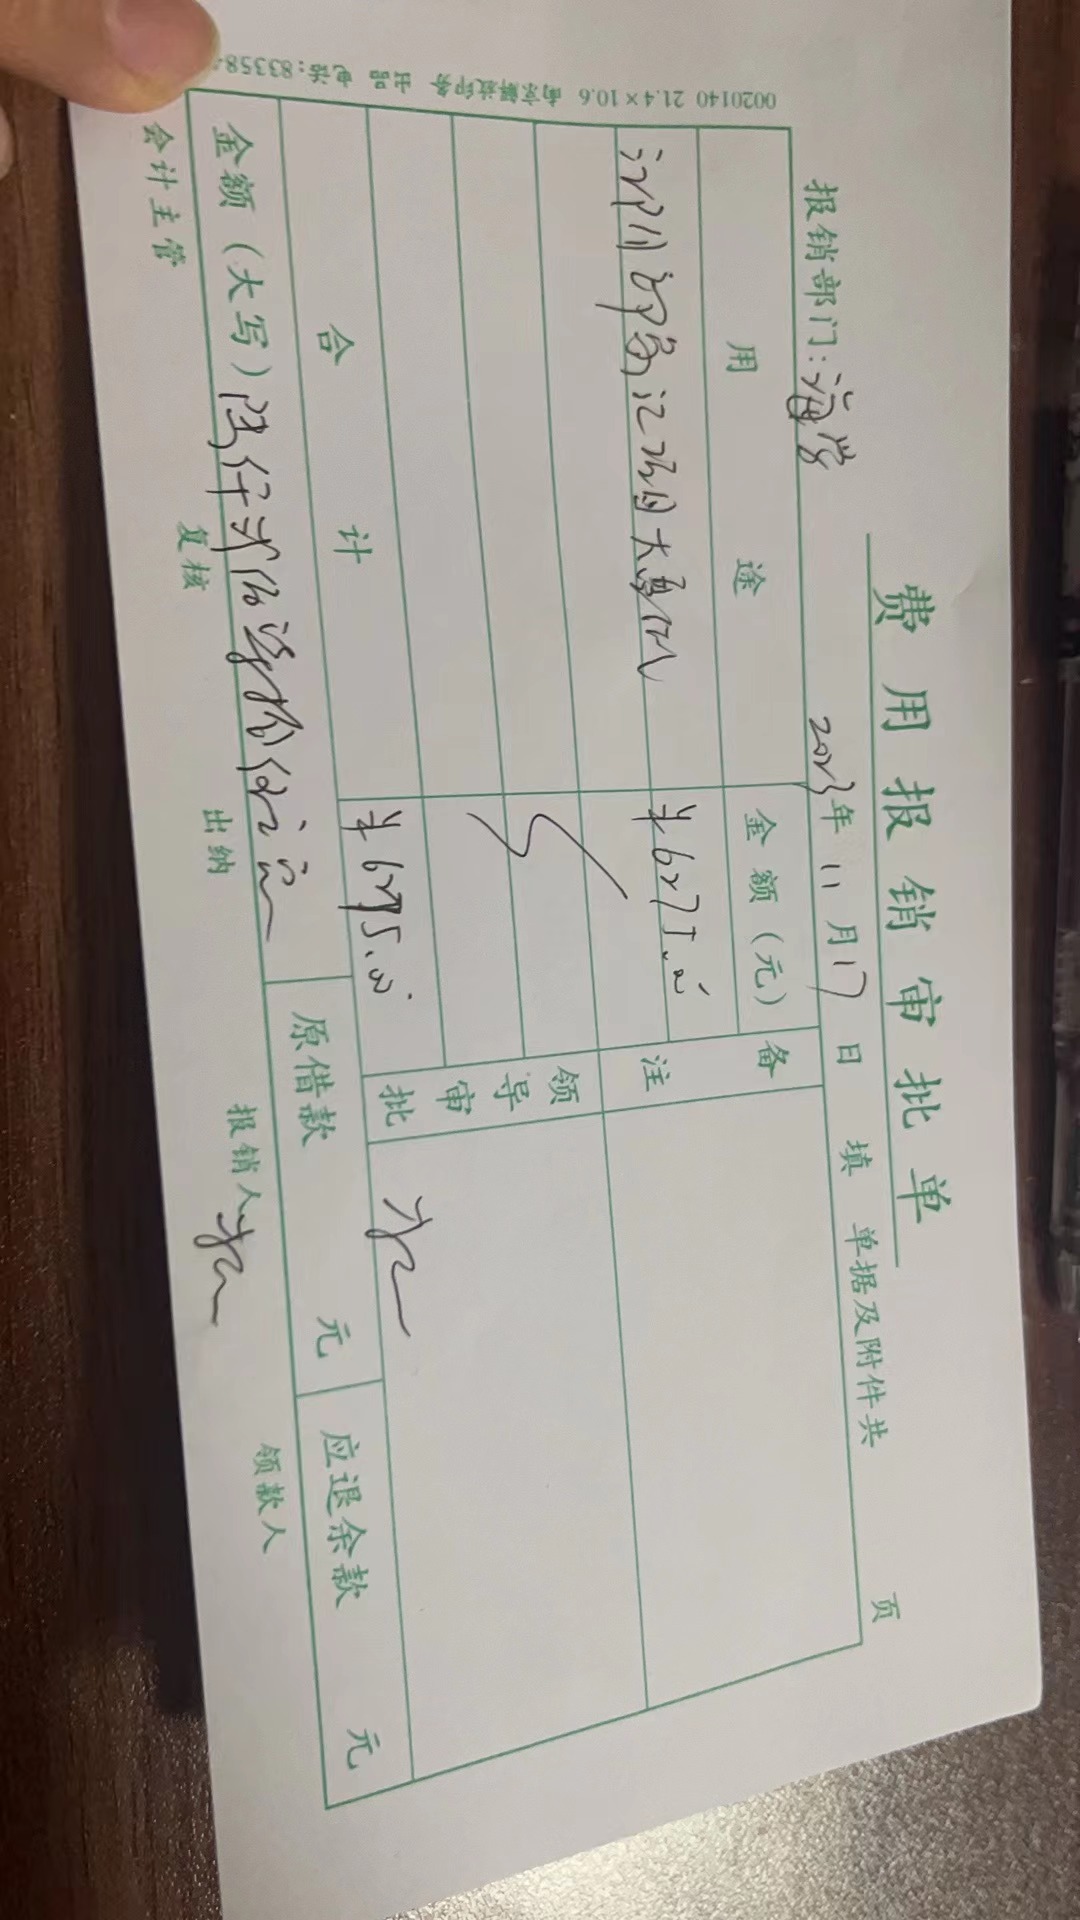 费用报销审批单
报销部门：海棠 2023年11月17日填 单据及附件共 页
用途 金额(元) 备注
¥6275.00
领导审批
合计 ¥6275.00
金额(大写)陆仟贰佰柒拾伍元 原借款 元 应退余款 元
会计主管 复核 出纳 报销人 领款人
0020140 21.4×10.6 南京解放印务 出品 电话:83358